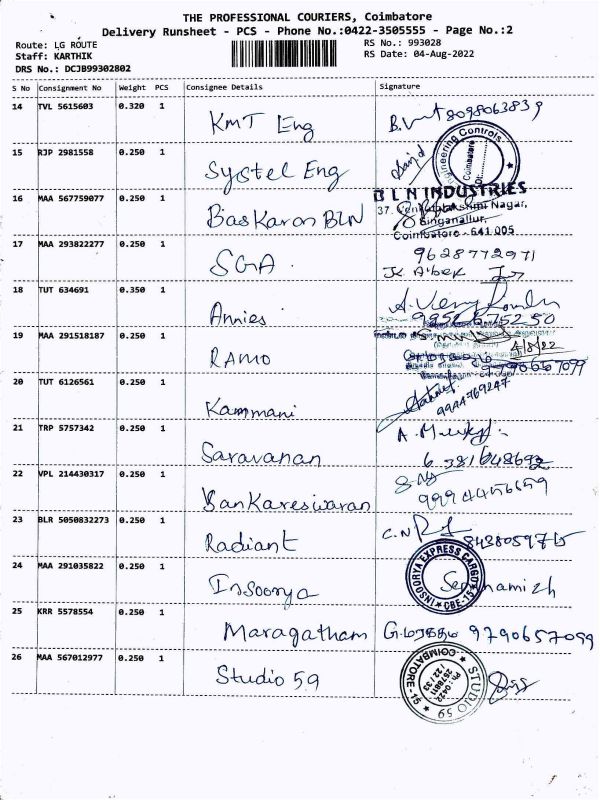 THE PROFESSIONAL COURIERS, Coimbatore
Delivery Runsheet - PCS - Phone No.:0422-3505555 - Page No.:2
Route: LG ROUTE
RS No.: 993028
Staff: KARTHIK
RS Date: 04-Aug-2022
DRS No.: DCJB99302802
S No Consignment No Weight PCS Consignee Details Signature
14 TVL 5615603 0.320 1 KMT Eng 8098063839
15 RJP 2981558 0.250 1 Systel Eng
Engineering Controls
Coimbatore
16 MAA 567759077 0.250 1 Baskaran BLN
BLN INDUSTRIES
37, Venkatalakshmi Nagar,
Singanallur,
Coimbatore - 641 005
17 MAA 293822277 0.250 1 SGA 9628772971
18 TUT 634691 0.350 1 Annies
19 MAA 291518187 0.250 1 RAMO
4/8/22
20 TUT 6126561 0.250 1 Kammani 9944769247
21 TRP 5757342 0.250 1 Saravanan
6381648692
22 VPL 214430317 0.250 1 Bankareswaran
23 BLR 5050832273 0.250 1 Radiant C.N
24 MAA 291035822 0.250 1 Insoorya
INSOORYA EXPRESS CARGO
CBE-15
25 KRR 5578554 0.250 1 Maragatham G.மரகதம் 9790657099
26 MAA 567012977 0.250 1 Studio 59
STUDIO 59
COIMBATORE - 15
Ph : 0422